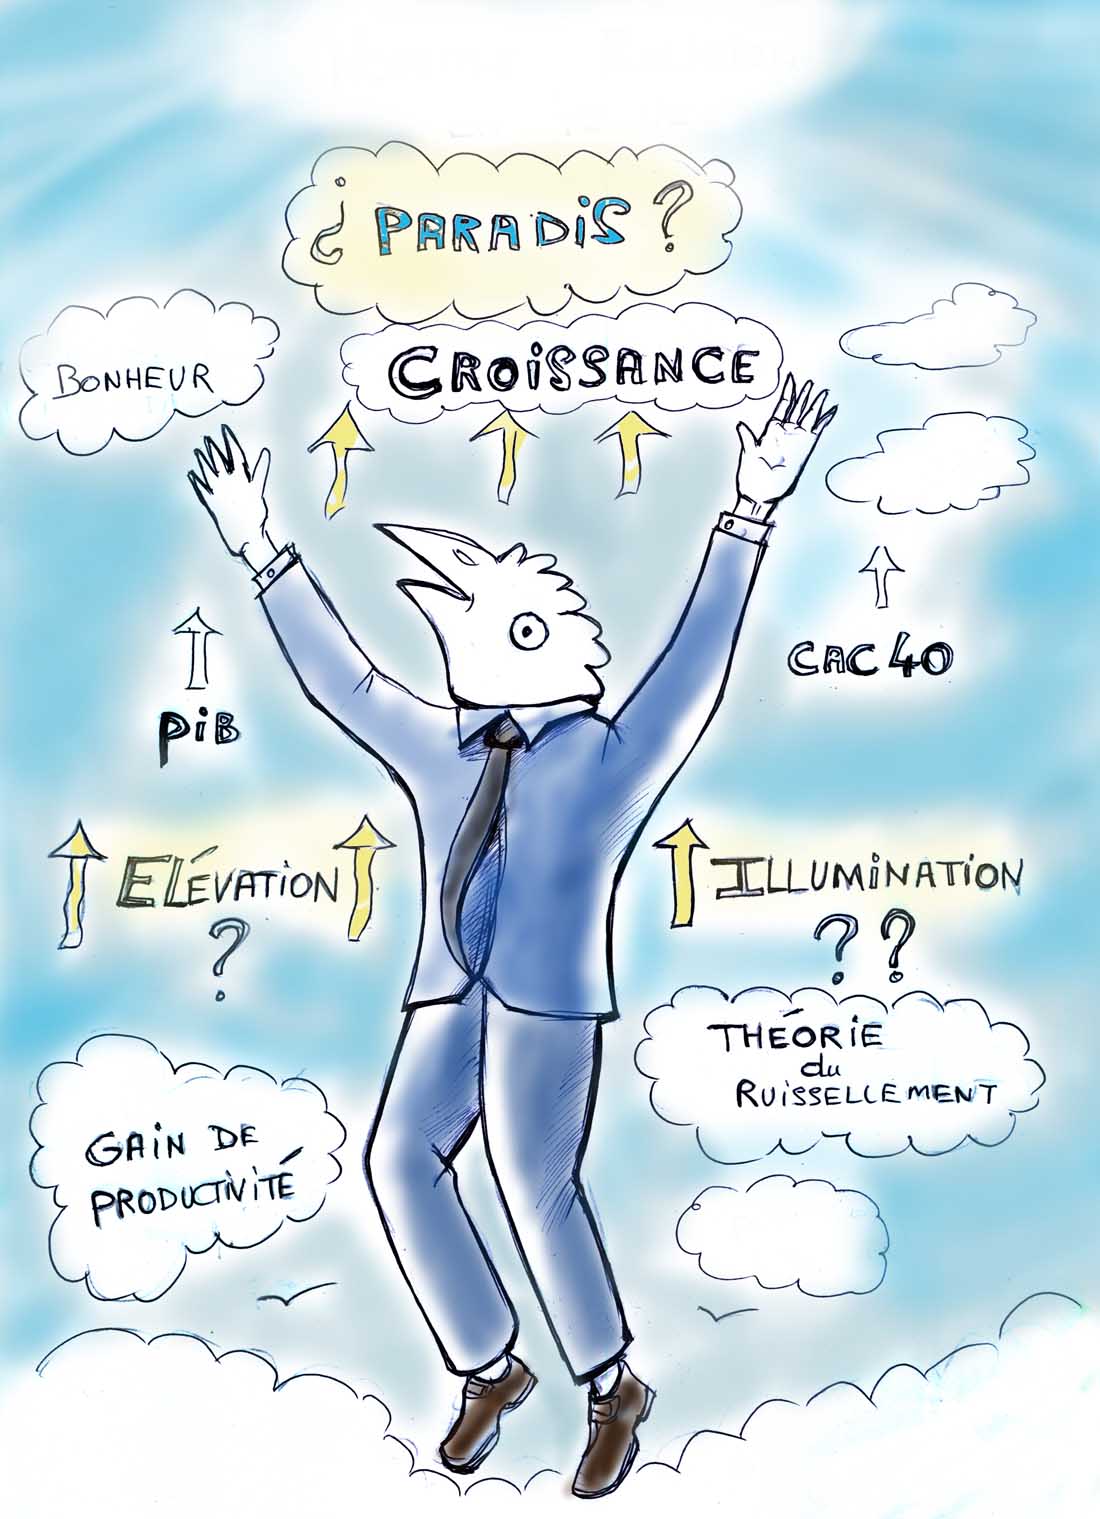 ¿ PARADiS ?
BONHEUR
CROiSSANCE
CAC 40
PiB
ELÉVATiON
?
ILLUMiNATiON
? ?
THÉORiE
du
RUiSSELLEMENT
GAiN DE
PRODUCTiViTÉ